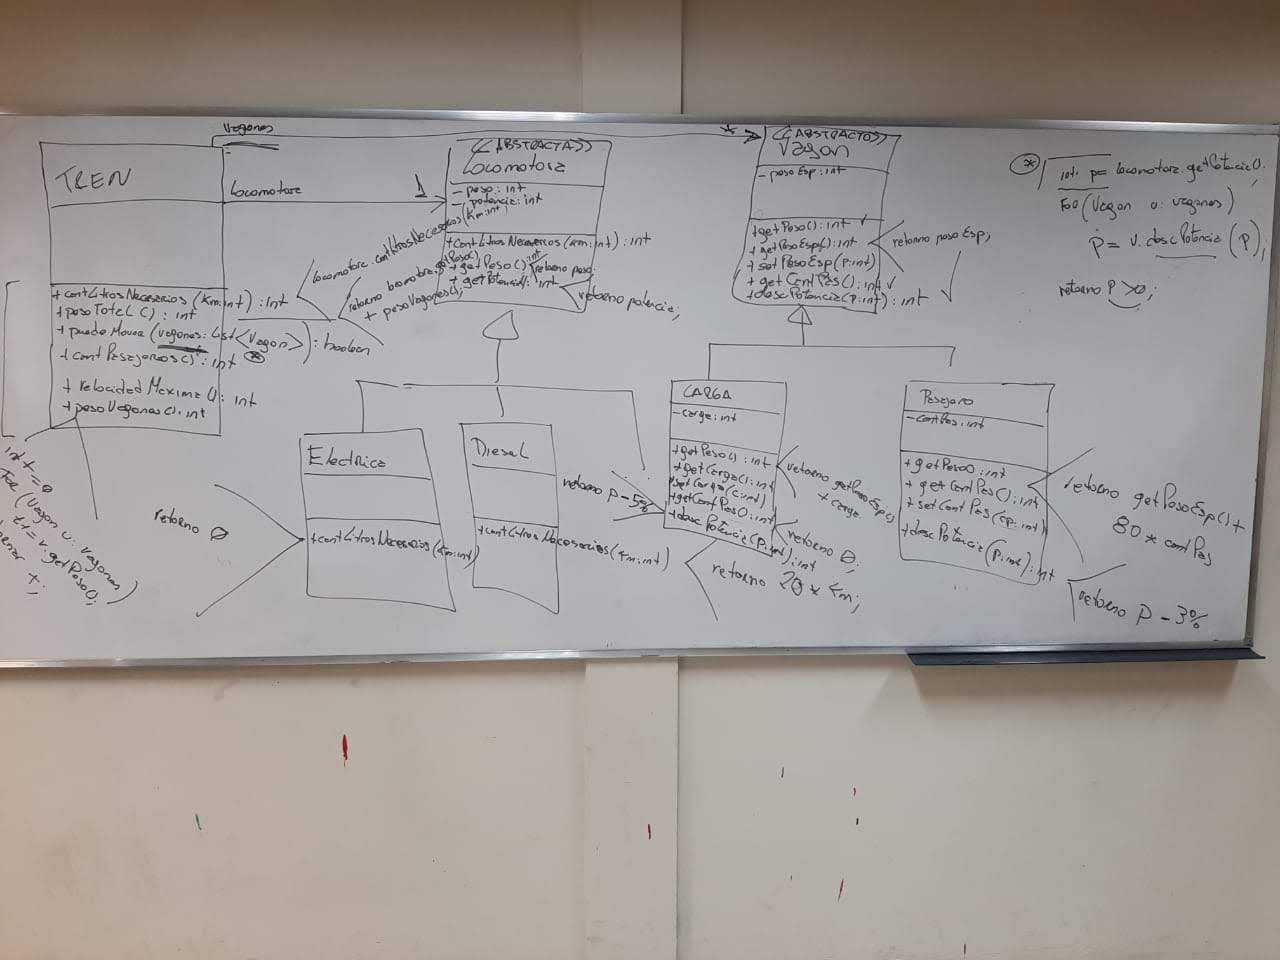 vagones
*
TREN
Locomotora
1
+ cantLitrosNecesarios (Km:int) : int
+ pesoTotal () : int
+ puedeMover (vagones: List <Vagon>) : boolean
*
+ cantPasajeros () : int
+ velocidadMaxima () : int
+ pesoVagones () : int
locomotora.cantLitrosNecesarios (Km:int);
retorno locomotora.getPeso()
+ pesoVagones();
int t = 0
FOR (Vagon v: vagones)
t+ = v.getPeso();
t;
<<ABSTRACTA>>
Locomotora
- peso : int
- potencia : int
+ cantLitrosNecesarios (Km:int) : int
+ getPeso() : int
+ getPotencia() : int
retorno peso;
retorno potencia;
Electrica
+ cantLitrosNecesarios (Km:int)
retorno 0
Diesel
+ cantLitrosNecesarios (Km:int)
retorno 20 * Km;
<<ABSTRACTO>>
Vagon
- pesoEsp : int
+ getPeso() : int ✓
+ getPesoEsp() : int
+ setPesoEsp (p:int)
+ getCantPas() : int ✓
+ descPotencia (p:int) : int ✓
retorno pesoEsp;
CARGA
- carga : int
+ getPeso() : int
+ getCarga() : int
+ setCarga (c:int)
+ getCantPas() : int
+ descPotencia (p:int) : int
retorno getPesoEsp()
+ carga
retorno 0;
retorno p - 5%
Pasajero
- cantPas : int
+ getPeso() : int
+ getCantPas() : int
+ setCantPas (cp:int)
+ descPotencia (p:int) : int
retorno getPesoEsp() +
80 * cantPas
retorno p - 3%
* int p = locomotora.getPotencia();
FOR (Vagon v: vagones)
p = v.descPotencia (p);
retorno p > 0;